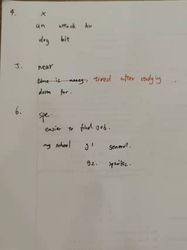 4. x
un attack hu
dog bit
5. near
time is money. tired after studying.
dorm for.
6. spe
easier to find job.
my school g1 general.
g2. specific.